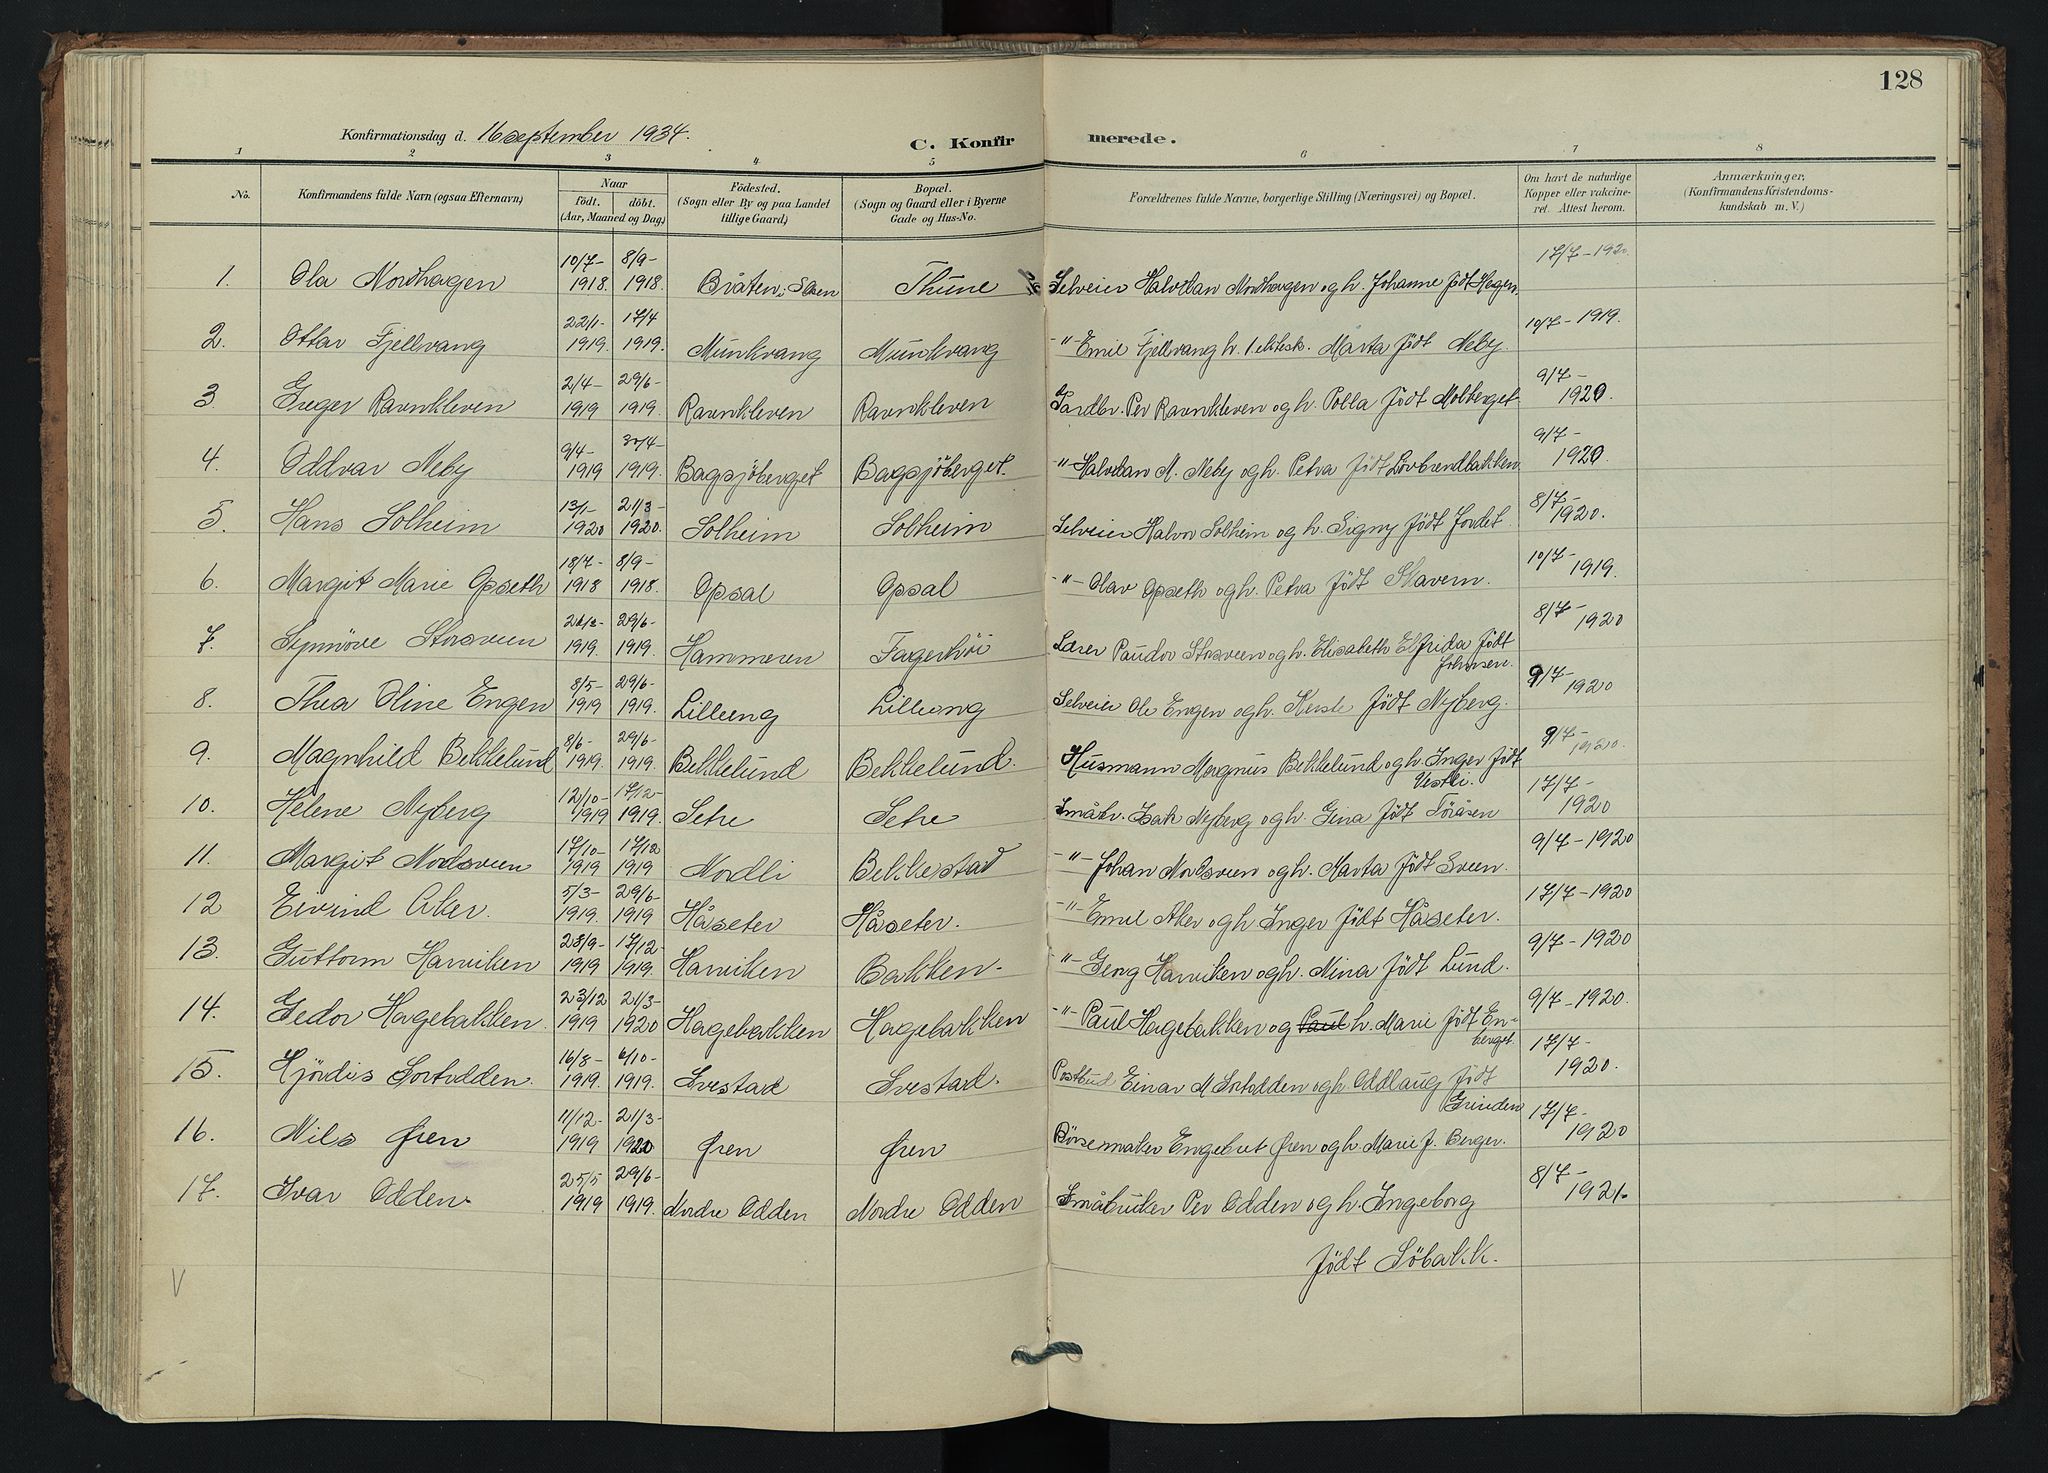 128
Konfirmationsdag d. 16 september 1934.
C. Konfirmerede.
1 2 3 4 5 6 7 8
No. Konfirmandens fulde Navn (ogsaa Efternavn). Naar født. døbt. (Aar, Maaned og Dag) Födested. (Sogn eller By og paa Landet tillige Gaard) Bopæl. (Sogn og Gaard eller i Byerne Gade og Hus-No. Forældrenes fulde Navne, borgerlige Stilling (Næringsvei) og Bopæl. Om havt de naturlige Kopper eller vakcineret. Attest herom. Anmærkninger, (Konfirmandens Kristendomskundskab m. V.)
1. Ola Nordhagen 10/7-1918. 8/9-1918. Bråten i Thune Selveier Halvdan Nordhagen og h. Johanne født Hagen. 17/7-1920.
2. Ottar Fjellvang 22/1-1919. 17/4 1919. Munkvang Munkvang -"- Emil Fjellvang h. 1. ektesk. Marta født Neby. 10/7-1919.
3. Ravnkleven 2/4-1919 29/6-1919. Ravnkleven Ravnkleven Gardbr. Per Ravnkleven og h. Polla født Molberget 9/7-1920.
4. Oddvar Neby 9/4-1919 30/4-1919. Bagsjöberget Bagsjöberget. -"- Halvdan M. Neby og h. Petra født Løvbrendbakken 9/7-1920.
5. Hans Solheim 13/1-1920 21/3-1920. Solheim Solheim Selveier Halvor Solheim og h. Signy født Jordet. 8/7-1920.
6. Margit Marie Opseth 18/7-1918 8/9-1918. Opsal Opsal -"- Olav Opseth og h. Petra født Stavern. 10/7-1919.
7. Synnöve Storsveen 1919. 29/6-1919. Hammeren Fagerhöi Lærer Storsveen og h. Elisabeth Elfrida født Johnsen. 8/7-1920
8. Thea Oline Engen 8/5-1919 29/6-1919. Lilleeng Lilleeng Selveier Ole Engen og h. Kerste født Nyberg. 9/7-1920
9. Magnhild Bekkelund 8/6-1919. 29/6-1919. Bekkelund Bekkelund. Husmann Magnus Bekkelund og h. Inger født Vestli. 9/7-1920.
10. Helene Nyberg 12/10-1919 17/12-1919. Setre Setre Småbr. Isak Nyberg og h. Gina født Töråsen 17/7-1920
11. Margit Nordsveen 17/10-1919 17/12 1919 Nordli Bekkestad -"- Johan Nordsveen og h. Marta født Sveen. 9/7-1920
12 Eivind Aker. 5/3-1919. 29/6-1919 Håseter Håseter. -"- Emil Aker og h. Inger født Håseter. 17/7-1920
13. Guttorm Harviken 28/9-1919 17/12-1919. Harviken Bakken. -"- Georg Harviken og h. Nina født Lund. 9/7-1920
14. Gedor Hagebakken 23/12 1919 21/3-1920 Hagebakken Hagebakken -"- Paul Hagebakken og Paul h. Marie født Enberget. 9/7-1920.
15. Hjördis Sortodden. 16/8-1919. 6/10-1919. Svestad Svestad. Postbud Einar M Sortodden og h. Oddlaug født Grinden 17/7-1920.
16. Nils Øren 11/12-1919 21/3-1920 Øren Øren Børsemaker Engebret Øren og h. Marie f. Berger. 17/7-1920
17. Ivar Odden. 25/5 1919 29/6-1919. Nordre Odden Nordre Odden Småbruker Per Odden og h. Ingeborg født Söbakk. 8/7-1921-
V